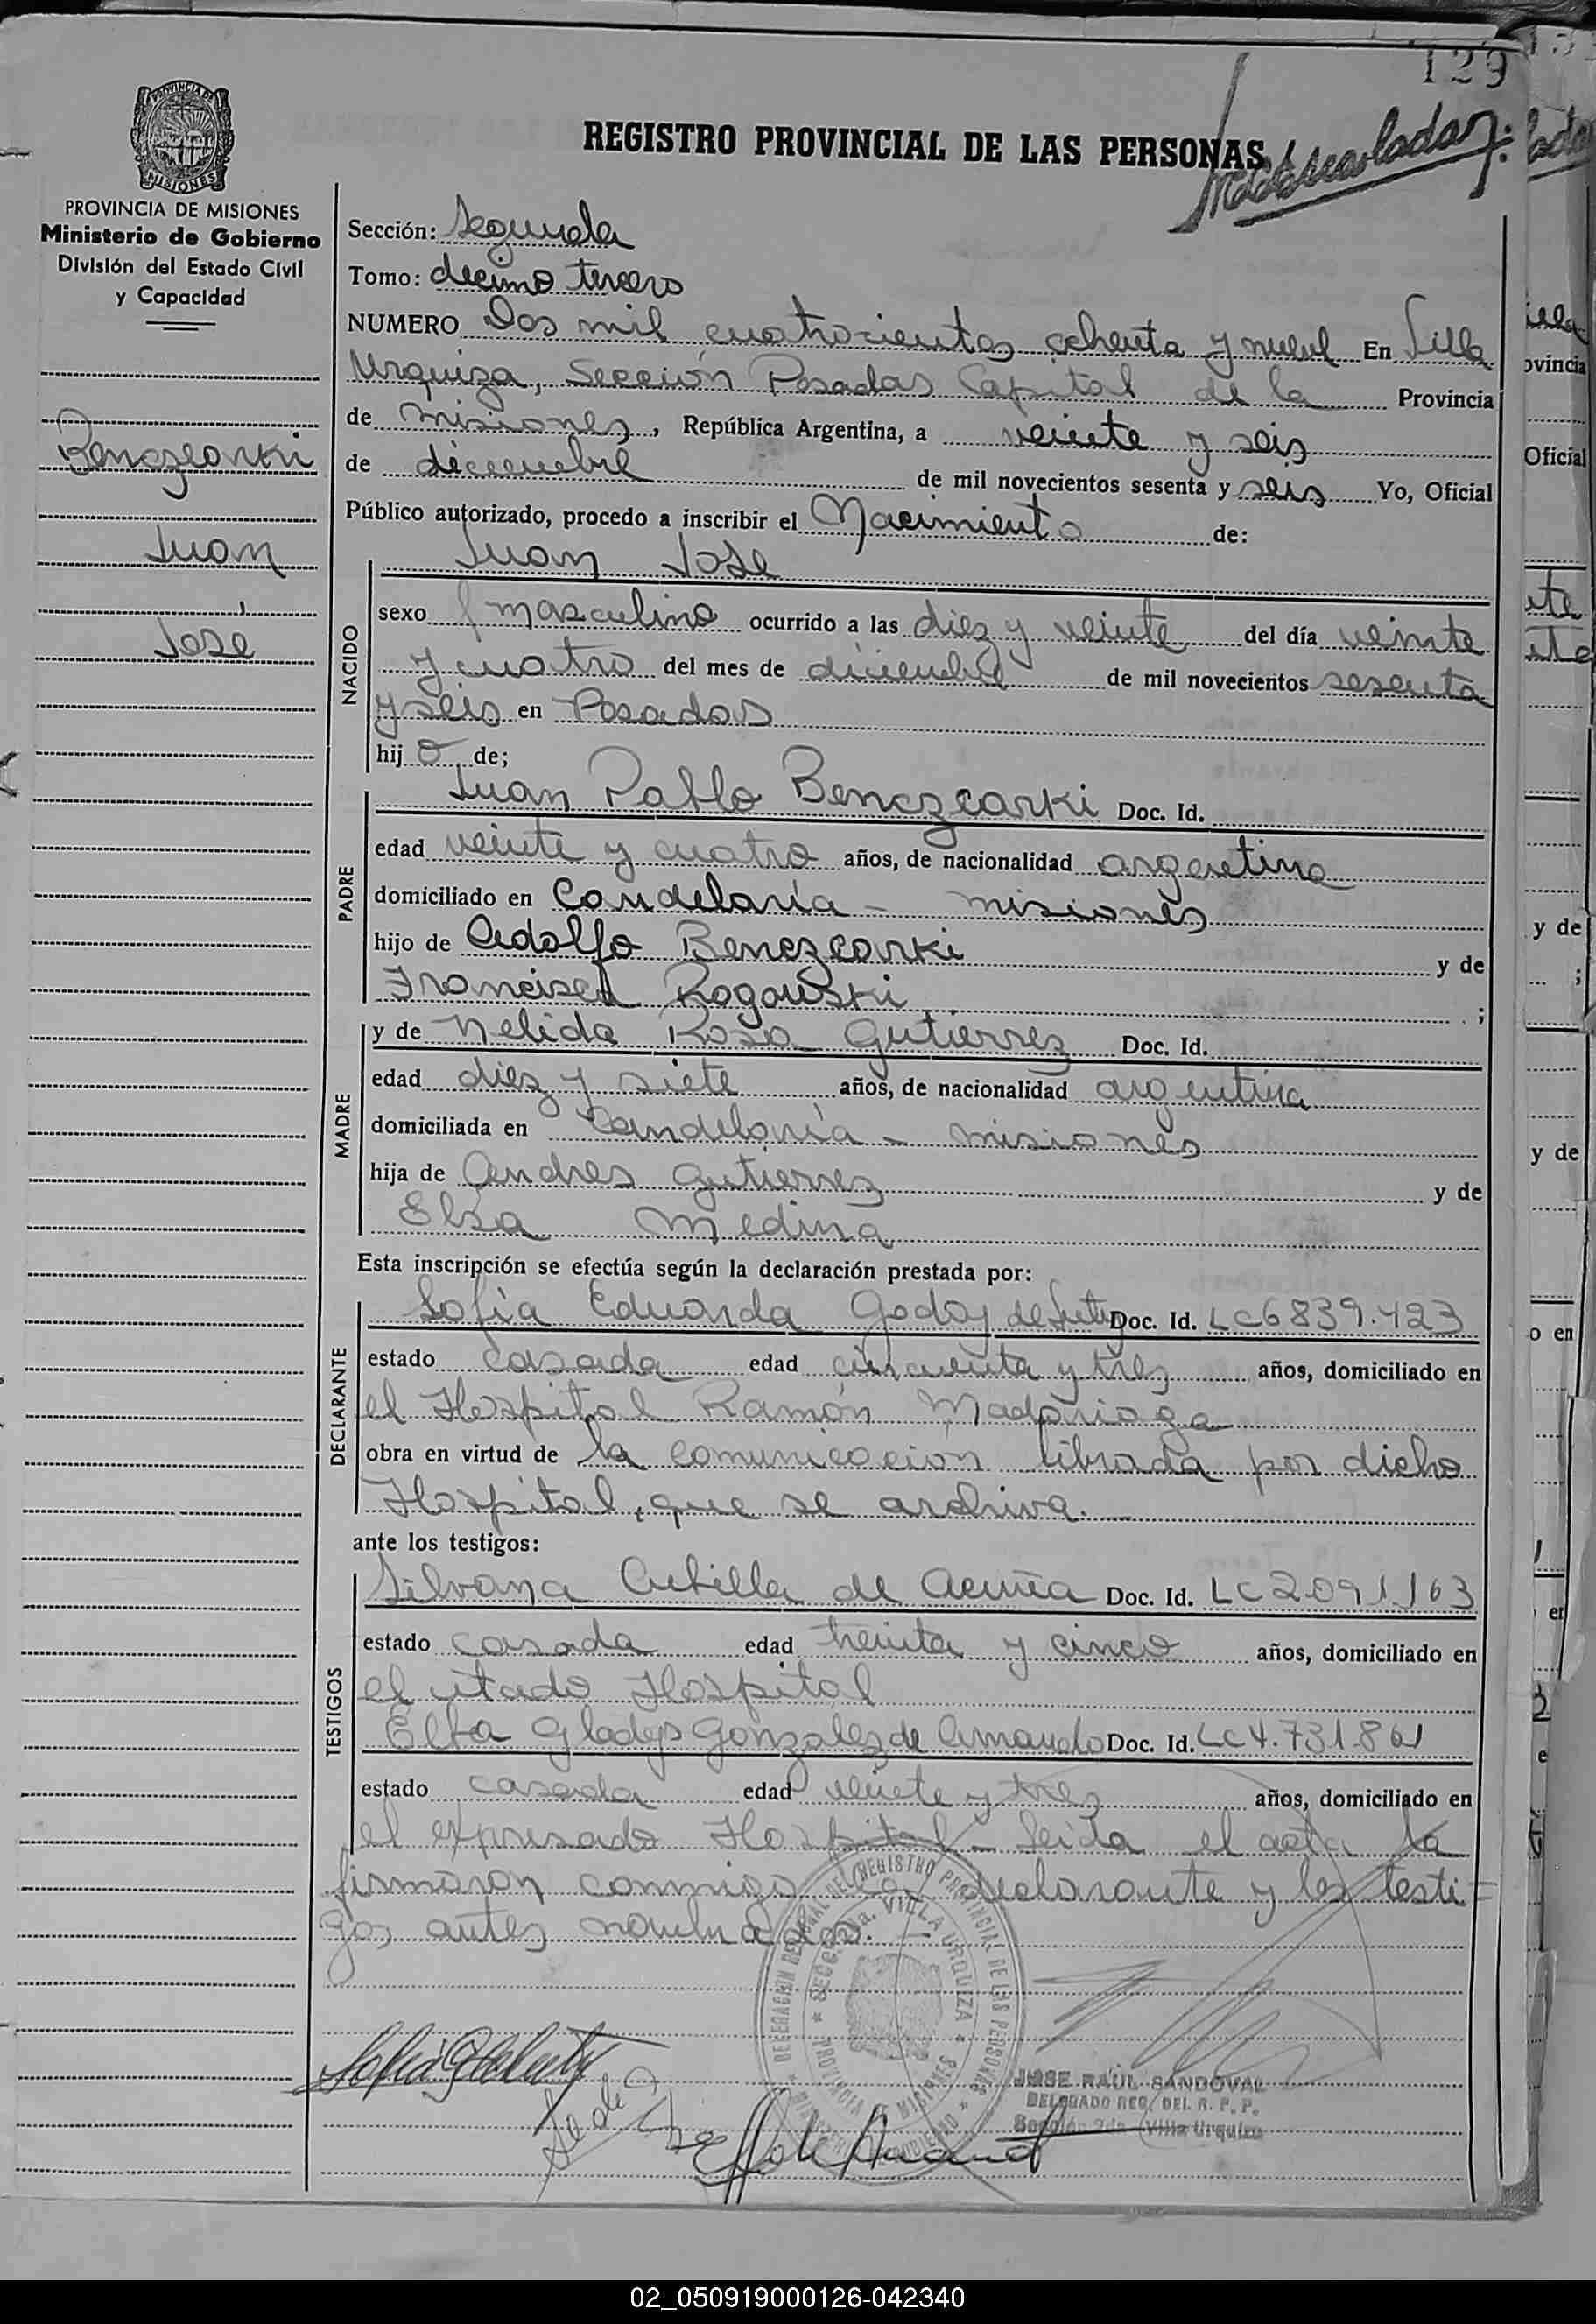 129
REGISTRO PROVINCIAL DE LAS PERSONAS
PROVINCIA DE MISIONES
Ministerio de Gobierno
División del Estado Civil
y Capacidad
Benczcarki
Juan
José
Sección: Segunda
Tomo: decimo tercero
NUMERO Dos mil cuatrocientos ochenta y nueve En Villa
Urquiza, Sección Posadas Capital de la Provincia
de misiones, República Argentina, a veinte y seis
de diciembre de mil novecientos sesenta y seis Yo, Oficial
Público autorizado, procedo a inscribir el Nacimiento de:
Juan José
NACIDO
sexo masculino ocurrido a las diez y veinte del día veinte
y cuatro del mes de diciembre de mil novecientos sesenta
y seis en Posadas
hijo de;
PADRE
Juan Pablo Benczcarki Doc. Id.
edad veinte y cuatro años, de nacionalidad argentina
domiciliado en Candelaria - misiones
hijo de Adolfo Benczcarki y de
Francisca Rogowski ;
MADRE
y de Nelida Rosa Gutierrez Doc. Id.
edad diez y siete años, de nacionalidad argentina
domiciliada en Candelaria - misiones
hija de Andres Gutierrez y de
Elsa Medina
Esta inscripción se efectúa según la declaración prestada por:
DECLARANTE
Sofía Eduarda Godoy de Doc. Id. LC6839.423
estado casada edad cincuenta y tres años, domiciliado en
el Hospital Ramón Madariaga
obra en virtud de la comunicación librada por dicho
Hospital, que se archiva.
ante los testigos:
TESTIGOS
Silvana Cubilla de Acuña Doc. Id. LC2091163
estado casada edad treinta y cinco años, domiciliado en
el citado Hospital
Elba Gladys Gonzalez de Amando Doc. Id. LC4.731.861
estado casada edad veinte y tres años, domiciliado en
el expresado Hospital - Leída el acta la
firmaron conmigo la declarante y los testi=
gos antes nombrados.
DELEGACION REGIONAL DEL REGISTRO PROVINCIAL DE LAS PERSONAS
SECC. 2da. VILLA URQUIZA
PROVINCIA DE MISIONES
JOSE RAUL SANDOVAL
DELEGADO REG. DEL R. P. P.
Sección 2da. (Villa Urquiza
02_050919000126-042340